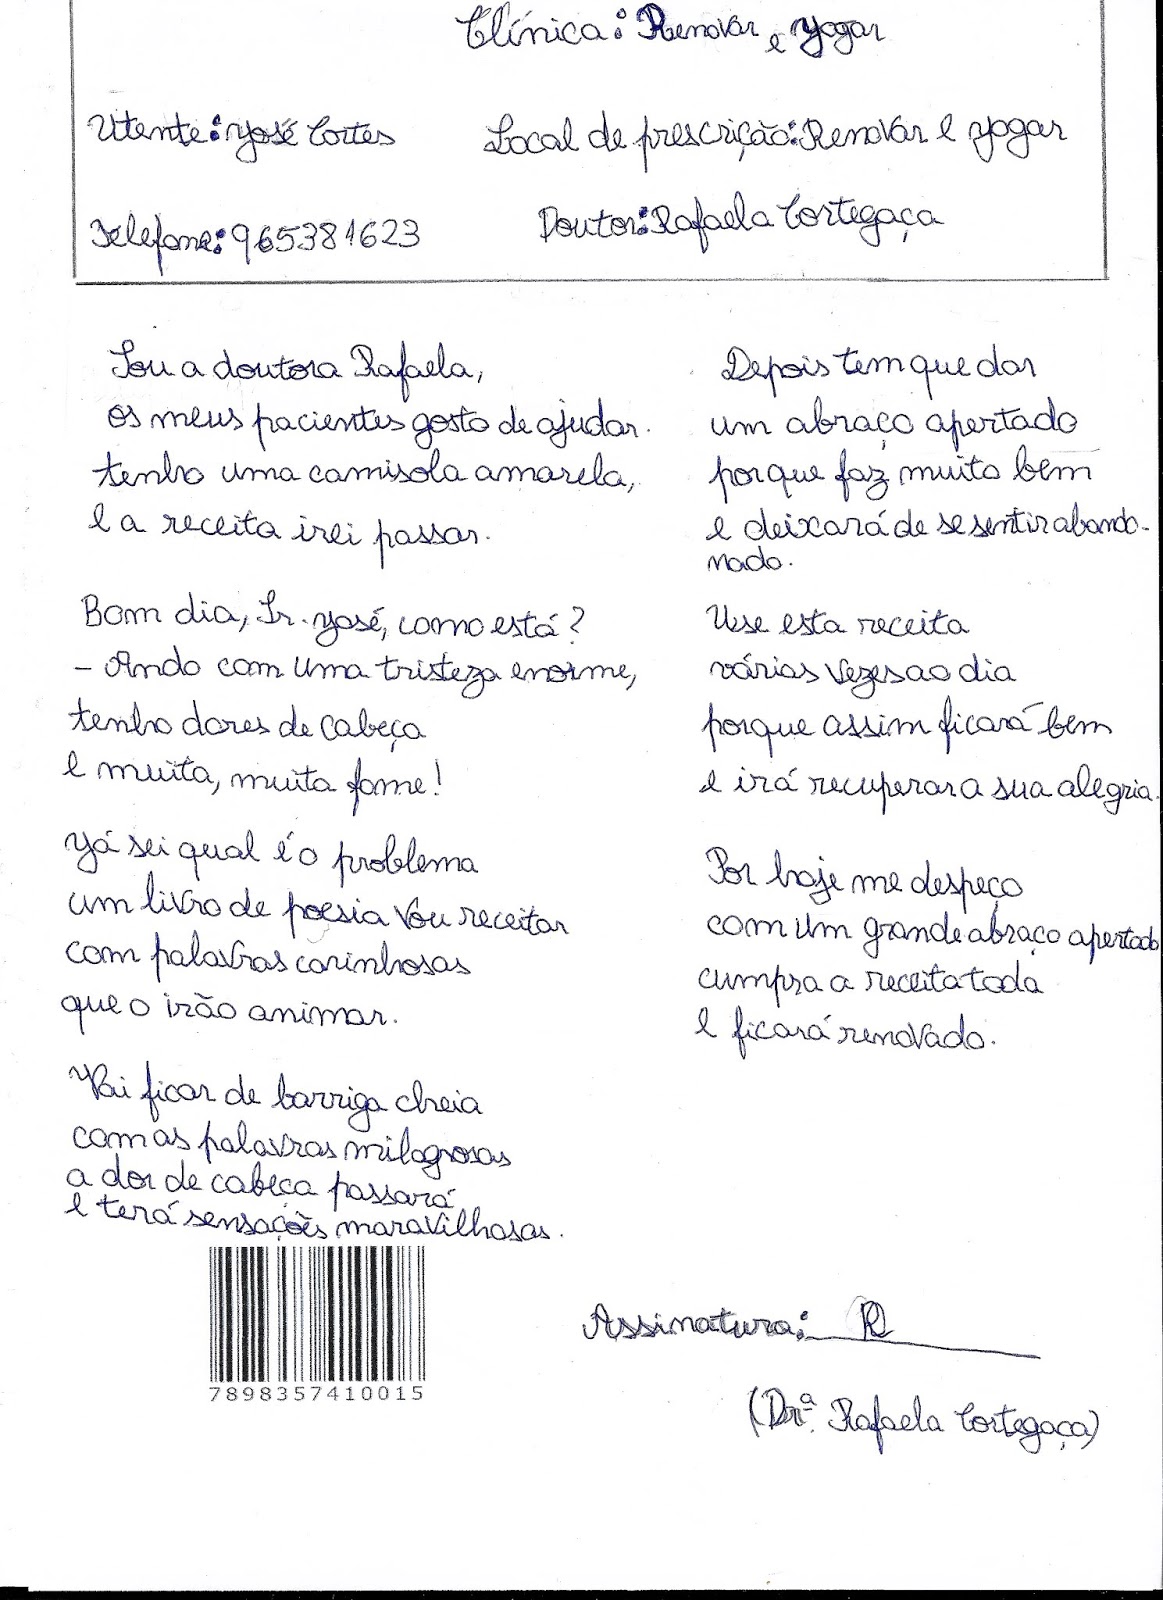 Clínica: Renovar e Yogar
Utente: José Cortes
Local de prescrição: Renovar e Yogar
Telefone: 965381623
Doutor: Rafaela Cortegaça
Sou a doutora Rafaela,
os meus pacientes gosto de ajudar.
tenho uma camisola amarela,
e a receita irei passar.
Bom dia, Sr. José, como está?
- Ando com uma tristeza enorme,
tenho dores de cabeça
e muita, muita fome!
Já sei qual é o problema
um livro de poesia vou receitar
com palavras carinhosas
que o irão animar.
Vai ficar de barriga cheia
com as palavras milagrosas
a dor de cabeça passará
e terá sensações maravilhosas.
Depois tem que dar
um abraço apertado
porque faz muito bem
e deixará de se sentir abando-
nado.
Use esta receita
várias vezes ao dia
porque assim ficará bem
e irá recuperar a sua alegria.
Por hoje me despeço
com um grande abraço apertado
cumpra a receita toda
e ficará renovado.
7898357410015
Assinatura: R
(Drª. Rafaela Cortegaça)